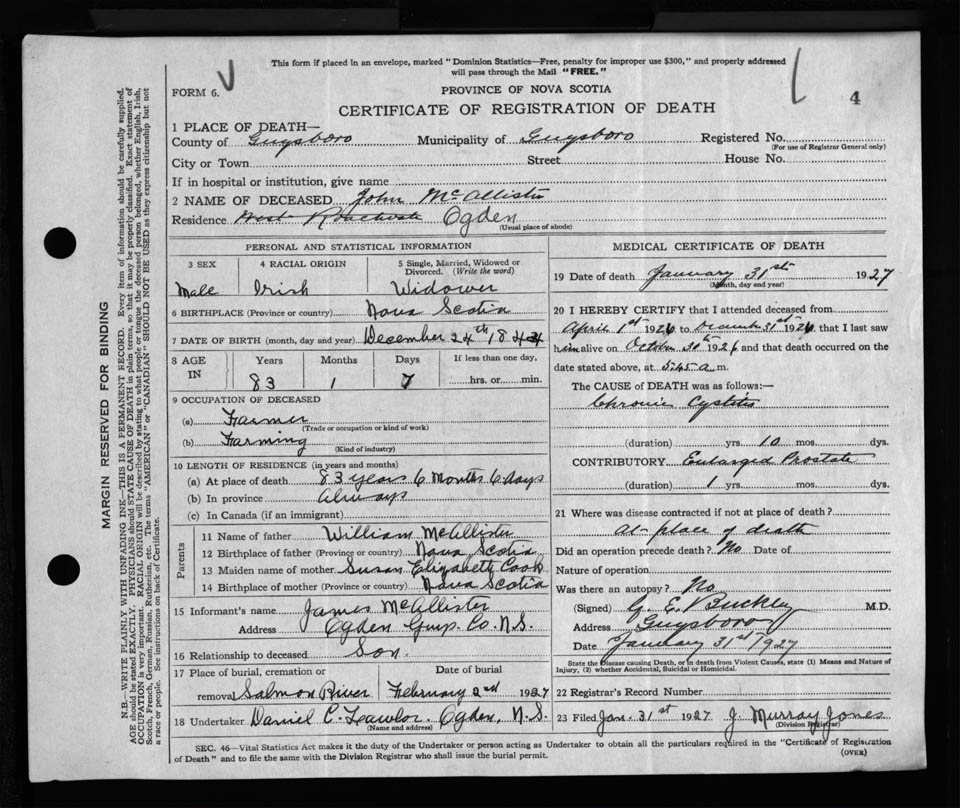 This form if placed in an envelope, marked "Dominion Statistics—Free, penalty for improper use $300," and properly addressed
will pass through the Mail "FREE."
FORM 6.
PROVINCE OF NOVA SCOTIA
4
CERTIFICATE OF REGISTRATION OF DEATH
1 PLACE OF DEATH—
County of Guysboro Municipality of Guysboro Registered No.
(For use of Registrar General only)
City or Town Street House No.
If in hospital or institution, give name
2 NAME OF DECEASED John McAllister
Residence West Ogden
(Usual place of abode)
PERSONAL AND STATISTICAL INFORMATION
3 SEX 4 RACIAL ORIGIN 5 Single, Married, Widowed or
Divorced. (Write the word)
Male Irish Widower
6 BIRTHPLACE (Province or country) Nova Scotia
7 DATE OF BIRTH (month, day and year) December 24th 184
8 AGE IN Years Months Days If less than one day,
83 1 7 hrs. or min.
9 OCCUPATION OF DECEASED
(a) Farmer
(Trade or occupation or kind of work)
(b) Farming
(Kind of industry)
10 LENGTH OF RESIDENCE (in years and months)
(a) At place of death 83 years 6 Months 6 days
(b) In province always
(c) In Canada (if an immigrant)
Parents
11 Name of father William McAllister
12 Birthplace of father (Province or country) Nova Scotia
13 Maiden name of mother Susan Elizabeth Cook
14 Birthplace of Mother (Province or country) Nova Scotia
15 Informant's name James McAllister
Address Ogden Guys. Co. N.S.
16 Relationship to deceased Son.
17 Place of burial, cremation or Date of burial
removal Salmon River February 2nd 1927
18 Undertaker Daniel C. Lawlor. Ogden, N.S.
(Name and address)
MEDICAL CERTIFICATE OF DEATH
19 Date of death January 31st 1927
(Month, day and year)
20 I HEREBY CERTIFY that I attended deceased from
April 1st 1926 to December 31st 1926, that I last saw
him alive on October 30th 1926 and that death occurred on the
date stated above, at 5.45 a m.
The CAUSE of DEATH was as follows:—
Chronic Cystitis
(duration) yrs. 10 mos. dys.
CONTRIBUTORY Enlarged Prostate
(duration) 1 yrs. mos. dys.
21 Where was disease contracted if not at place of death?
At place of death
Did an operation precede death? No Date of
Nature of operation
Was there an autopsy? No
(Signed) G. E. Buckley M.D.
Address Guysboro
Date January 31st 1927
State the Disease causing Death, or in death from Violent Causes, state (1) Means and Nature of
Injury, (2) whether Accidental, Suicidal or Homicidal.
22 Registrar's Record Number
23 Filed Jan. 31st 1927 J. Murray Jones
(Division Registrar)
SEC. 46—Vital Statistics Act makes it the duty of the Undertaker or person acting as Undertaker to obtain all the particulars required in the "Certificate of Registration
of Death" and to file the same with the Division Registrar who shall issue the burial permit.
(OVER)
MARGIN RESERVED FOR BINDING
N.B.—WRITE PLAINLY WITH UNFADING INK—THIS IS A PERMANENT RECORD. Every item of information should be carefully supplied.
AGE should be stated EXACTLY. PHYSICIANS should STATE CAUSE OF DEATH in plain terms, so that it may be properly classified. Exact statement of
OCCUPATION is very important. RACIAL ORIGIN will be described by stating to what people or tongue the deceased person belonged, whether English, Irish,
Scotch, French, German, Russian, Ruthenian, etc. The terms "AMERICAN" or "CANADIAN" SHOULD NOT BE USED as they express citizenship but not
a race or people. See instructions on back of Certificate.